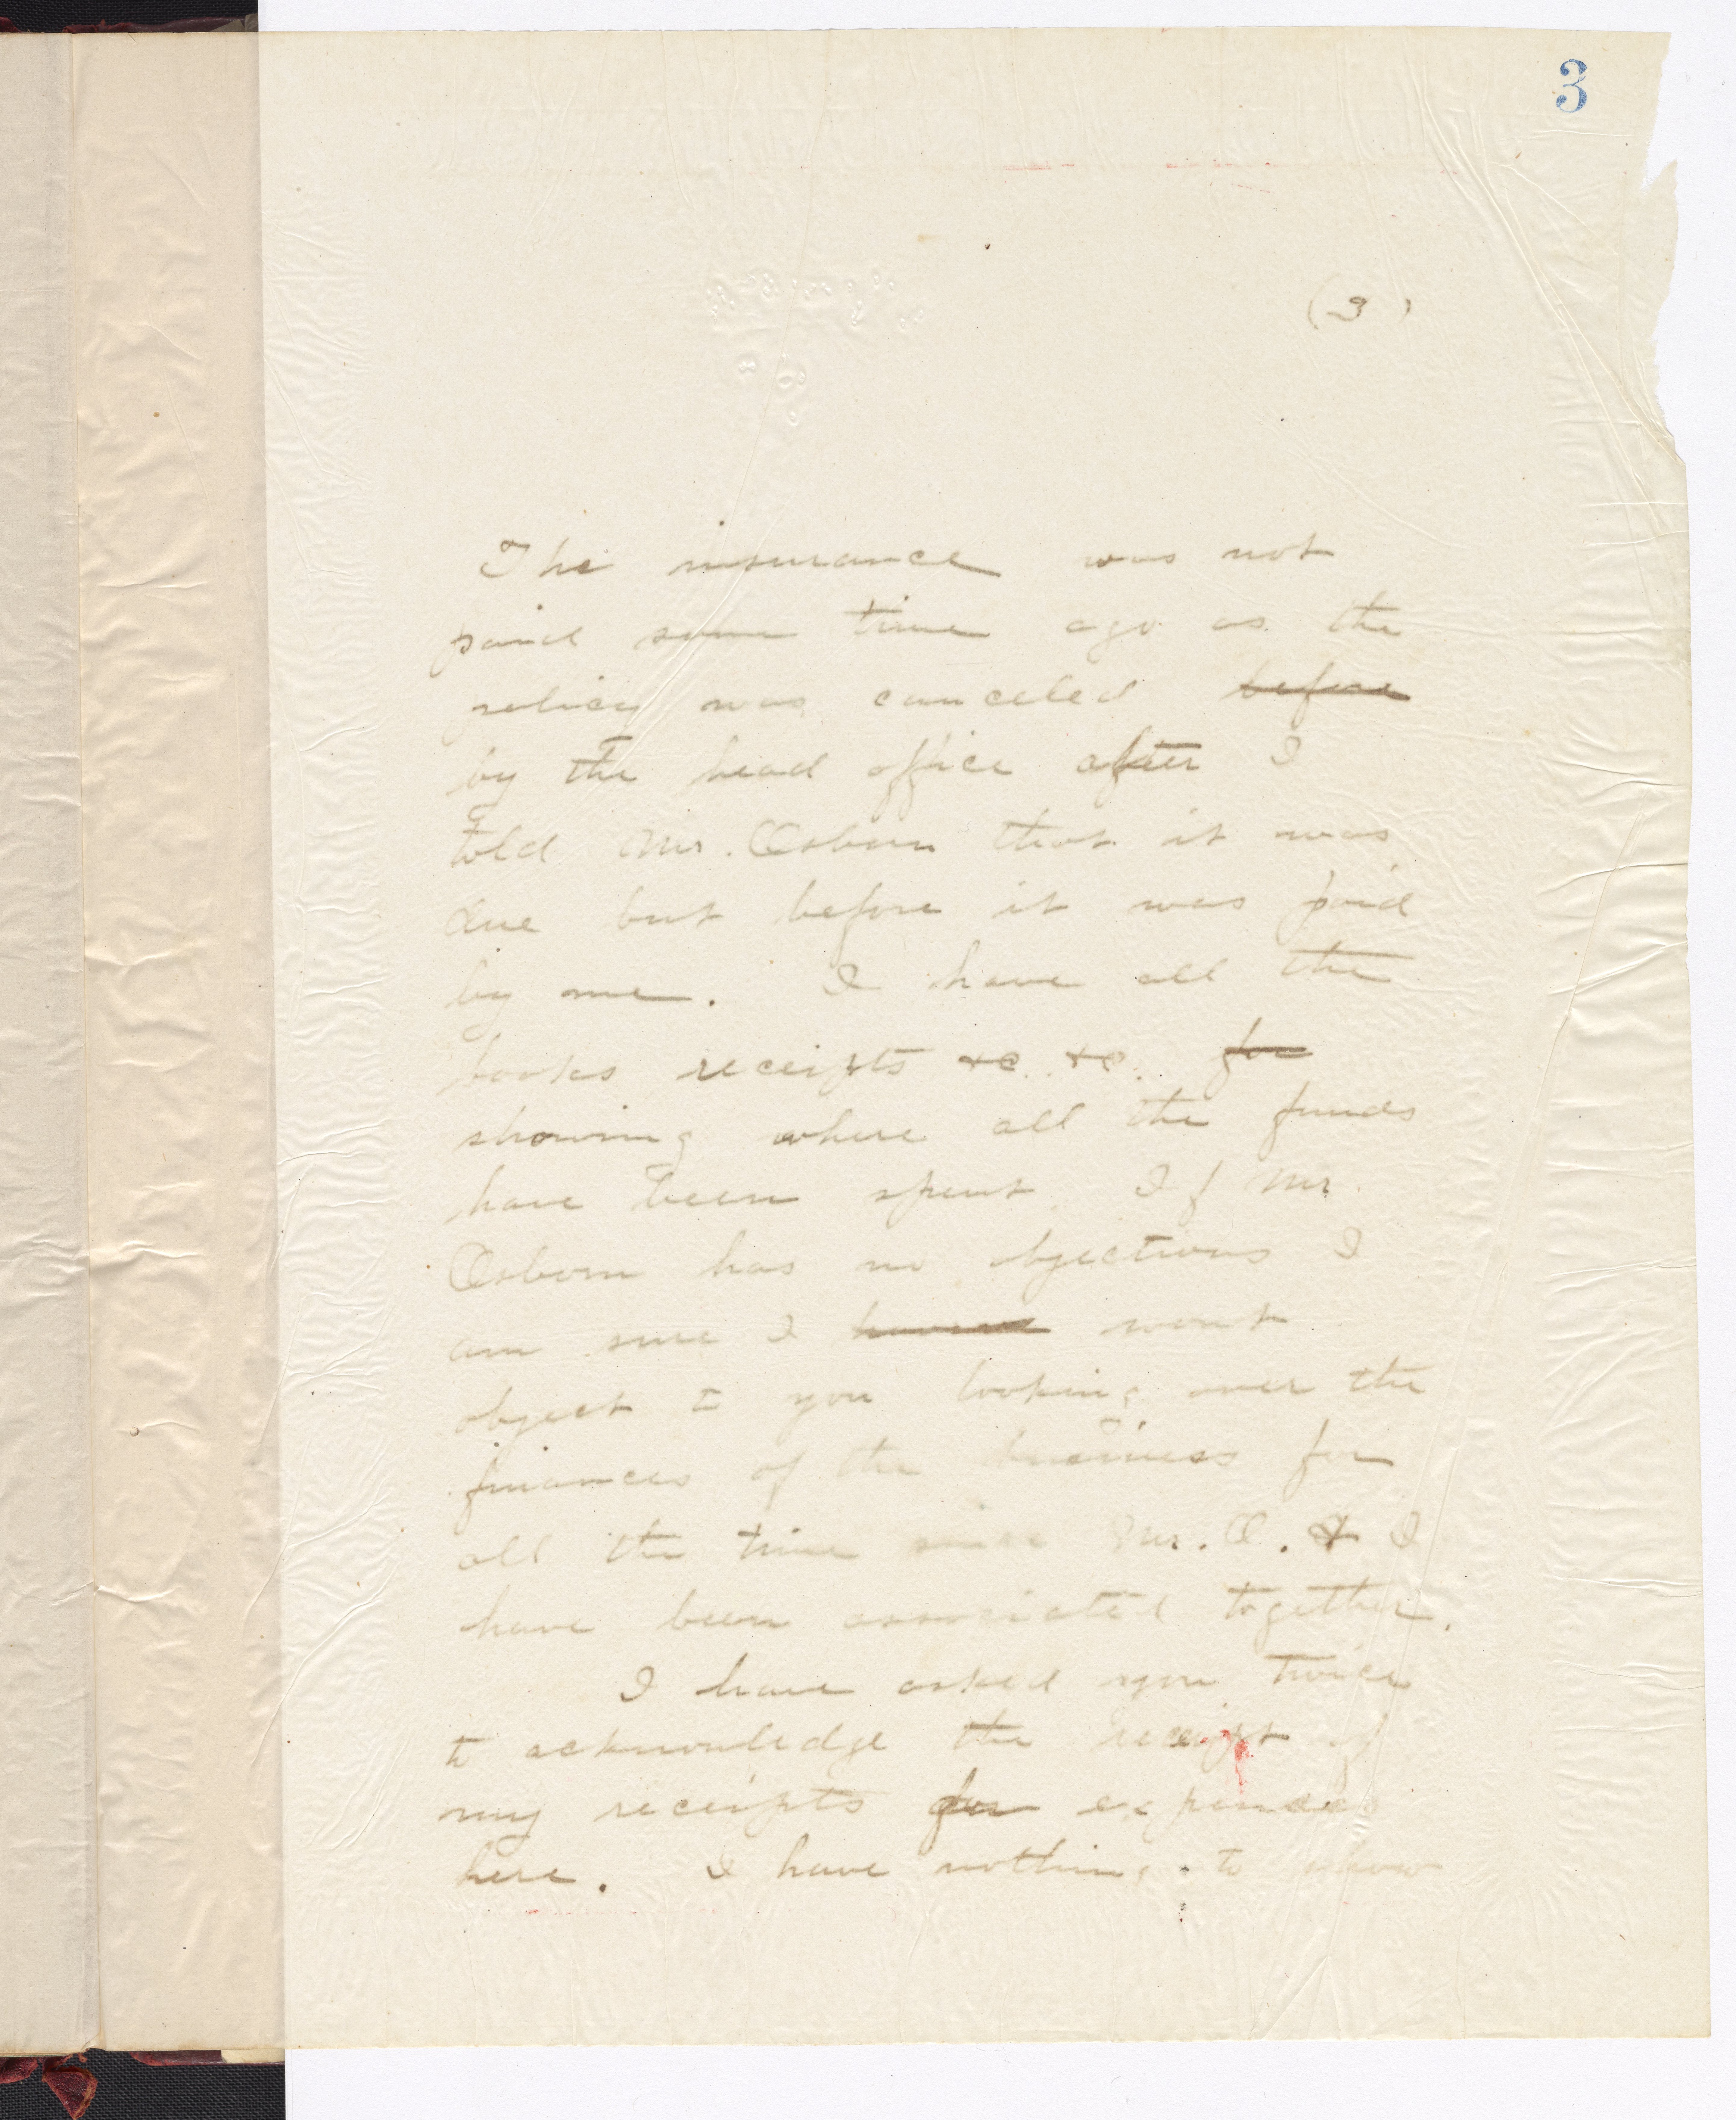 3
(3)
The insurance was not
paid some time ago as the
policy was canceled before
by the head office after I
told Mr. Osborn that it was
due but before it was paid
by me. I have all the
books receipts &c. &c. for
showing where all the funds
have been spent. If Mr.
Osborn has no objections I
am sure I wont
object to you looking over the
finances of the business for
all the time since Mr. O. & I
have been associated together.
I have asked you twice
to acknowledge the receipt of
my receipts for expenses
here. I have nothing to show